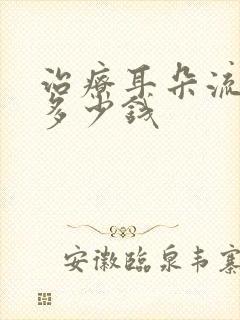 治療耳朵流
多少錢
安徽臨泉韦寨